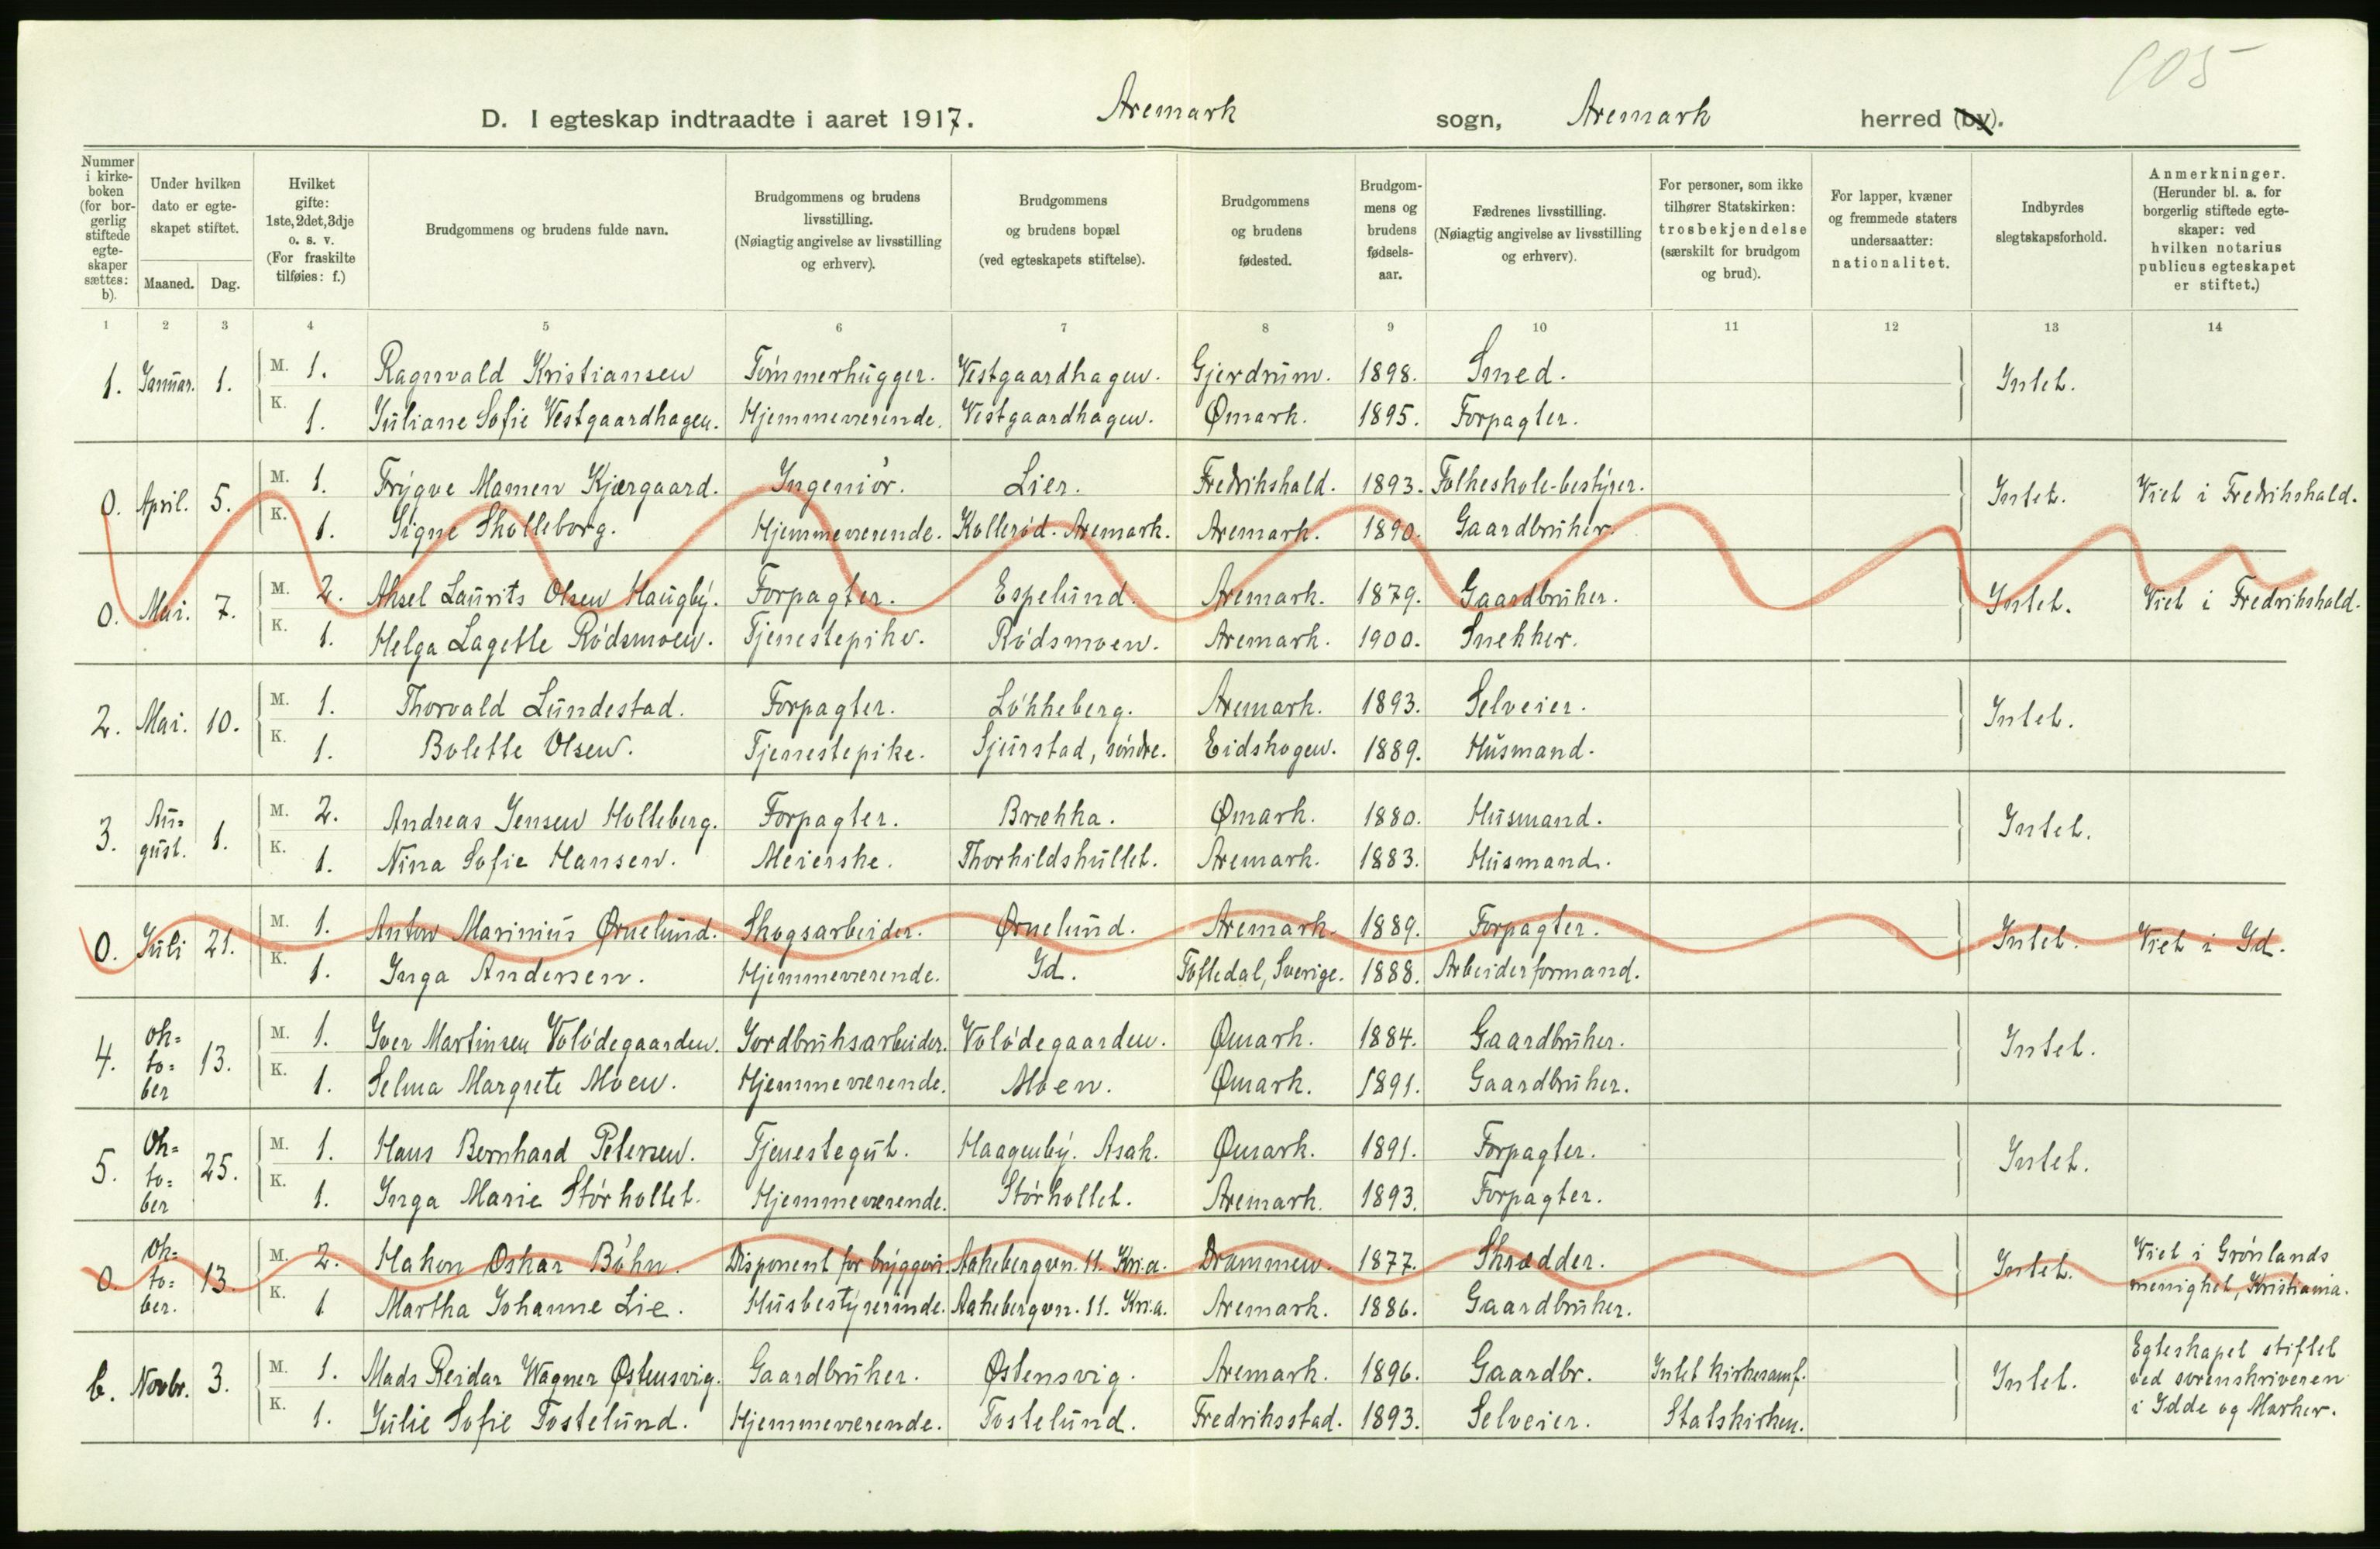 105
D. I egteskap indtraadte i aaret 1917. Aremark sogn, Aremark herred (by).
Nummer i kirke-boken (for bor-gerlig stiftede egte-skaper sættes: b).
Under hvilken dato er egte-skapet stiftet.
Maaned. Dag.
Hvilket gifte: 1ste, 2det, 3dje o. s. v. (For fraskilte tilføies: f.)
Brudgommens og brudens fulde navn.
Brudgommens og brudens livsstilling. (Nøiagtig angivelse av livsstilling og erhverv).
Brudgommens og brudens bopæl (ved egteskapets stiftelse).
Brudgommens og brudens fødested.
Brudgom-mens og brudens fødsels-aar.
Fædrenes livsstilling. (Nøiagtig angivelse av livsstilling og erhverv).
For personer, som ikke tilhører Statskirken: trosbekjendelse (særskilt for brudgom og brud).
For lapper, kvæner og fremmede staters undersaatter: nationalitet.
Indbyrdes slegtskapsforhold.
Anmerkninger. (Herunder bl. a. for borgerlig stiftede egte-skaper: ved hvilken notarius publicus egteskapet er stiftet.)
1 2 3 4 5 6 7 8 9 10 11 12 13 14
1. Januar. 1. M. 1. Ragnvald Kristiansen Tømmerhugger. Vestgaardhagen. Gjerdrum. 1898. Smed. Intet.
K. 1. Juliane Sofie Vestgaardhagen. Hjemmeværende. Vestgaardhagen. Ømark. 1895. Forpagter.
0. April. 5. M. 1. Trygve Mamen Kjærgaard. Ingeniør. Lier. Fredrikshald. 1893. Folkeskole-bestyrer. Intet. Viet i Fredrikshald.
K. 1. Signe Skolleborg. Hjemmeværende. Kollerød. Aremark. Aremark. 1890. Gaardbruker.
0. Mai. 7. M. 2. Aksel Laurits Olsen Haugby. Forpagter. Espelund. Aremark. 1879. Gaardbruker. Intet. Viet i Fredrikshald.
K. 1. Helga Lagette Rødsmoen. Tjenestepike. Rødsmoen. Aremark. 1900. Snekker.
2. Mai. 10. M. 1. Thorvald Lundestad. Forpagter. Løkkeberg. Aremark. 1893. Selveier. Intet.
K. 1. Bolette Olsen. Tjenestepike. Sjurstad, søndre. Eidskogen. 1889. Husmand.
3. Au=gust. 1. M. 2. Andreas Jensen Holleberg. Forpagter. Brækka. Ømark. 1880. Husmand. Intet.
K. 1. Nina Sofie Hansen. Meierske. Thorkildshullet. Aremark. 1883. Husmand.
0. Juli 21. M. 1. Anton Marinius Ørnelund. Skogsarbeider. Ørnelund. Aremark. 1889. Forpagter. Intet. Viet i Id.
K. 1. Inga Andersen. Hjemmeværende. Id. Töftedal, Sverige. 1888. Arbeiderformand.
4. Ok=to=ber 13. M. 1. Iver Martinsen Volødegaarden. Jordbruksarbeider. Volødegaarden. Ømark. 1884. Gaardbruker. Intet.
K. 1. Selma Margrete Moen. Hjemmeværende. Moen. Ømark. 1891. Gaardbruker.
5. Ok=to=ber 25. M. 1. Hans Bernhard Petersen. Tjenestegut. Haagenby. Asak. Ømark. 1891. Forpagter. Intet.
K. 1. Inga Marie Størhollet. Hjemmeværende. Størhollet. Aremark. 1893. Forpagter.
0. Ok=to=ber. 13. M. 2. Hakon Oskar Bøhn. Disponent for bryggeri. Aakebergvn. 11. Kri.a. Drammen. 1877. Skrædder. Intet. Viet i Grønlands menighet, Kristiania.
K. 1 Martha Johanne Lie. Husbestyrerinde. Aakebergvn. 11. Kri.a. Aremark. 1886. Gaardbruker.
6. Novbr. 3. M. 1. Mads Reidar Wagner Østensvig. Gaardbruker. Østensvig. Aremark. 1896. Gaardbr. Intet kirkesamf. Intet. Egteskapet stiftet ved sorenskriveren i Idde og Marker.
K. 1. Julie Sofie Tostelund. Hjemmeværende. Tostelund. Fredriksstad. 1893. Selveier. Statskirken.